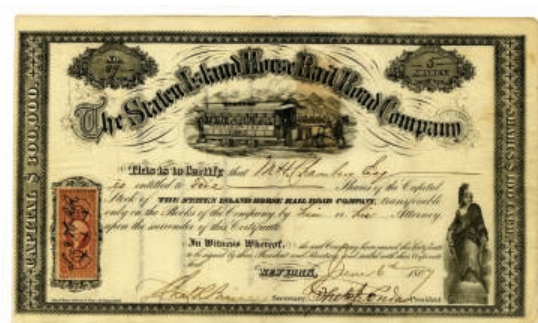 No.
5
SHARES
The Staten Island Horse Rail Road Company
CAPITAL $ 300,000.
SHARES $100 EACH.
This is to Certify that
is entitled to five Shares of the Capital
Stock of THE STATEN ISLAND HORSE RAIL ROAD COMPANY, transferable
only on the Books of the Company by him or his Attorney
upon the surrender of this Certificate
In Witness Whereof, the said Company have caused this Certificate
to be signed by their President and Secretary and sealed with their Corporate
Seal
NEW YORK, June 6th 1867
Secretary President